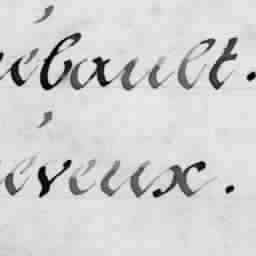 ébault.
éveux.